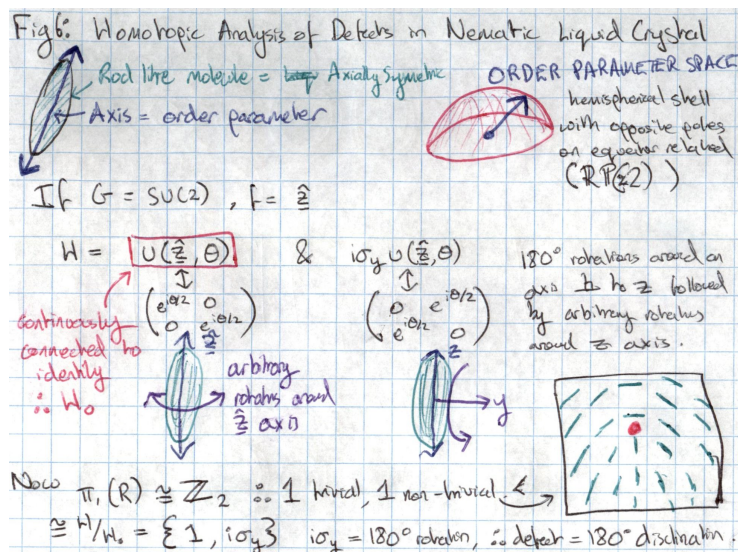 Fig 6: Homotopic Analysis of Defects in Nematic Liquid Crystal
Rod like molecule = Axially Symmetric
Axis = order parameter
ORDER PARAMETER SPACE
hemispherical shell
with opposite poles
on equator related
(RP(2))
If G = SU(2), f = ẑ
H = U(ẑ, θ) & iσy U(ẑ, θ)
(e^iθ/2 0
0 e^iθ/2)
(0 e^iθ/2
e^iθ/2 0)
180° rotations around an
axis ⊥ to z followed
by arbitrary rotations
around z axis.
continuously
connected to
identity
∴ H₀
ẑ
arbitrary
rotations around
ẑ axis
z
y
Now π₁(R) ≅ ℤ₂ ∴ 1 trivial, 1 non-trivial.
≅ H/H₀ = {1, iσy} iσy = 180° rotation, ∴ defect = 180° disclination.